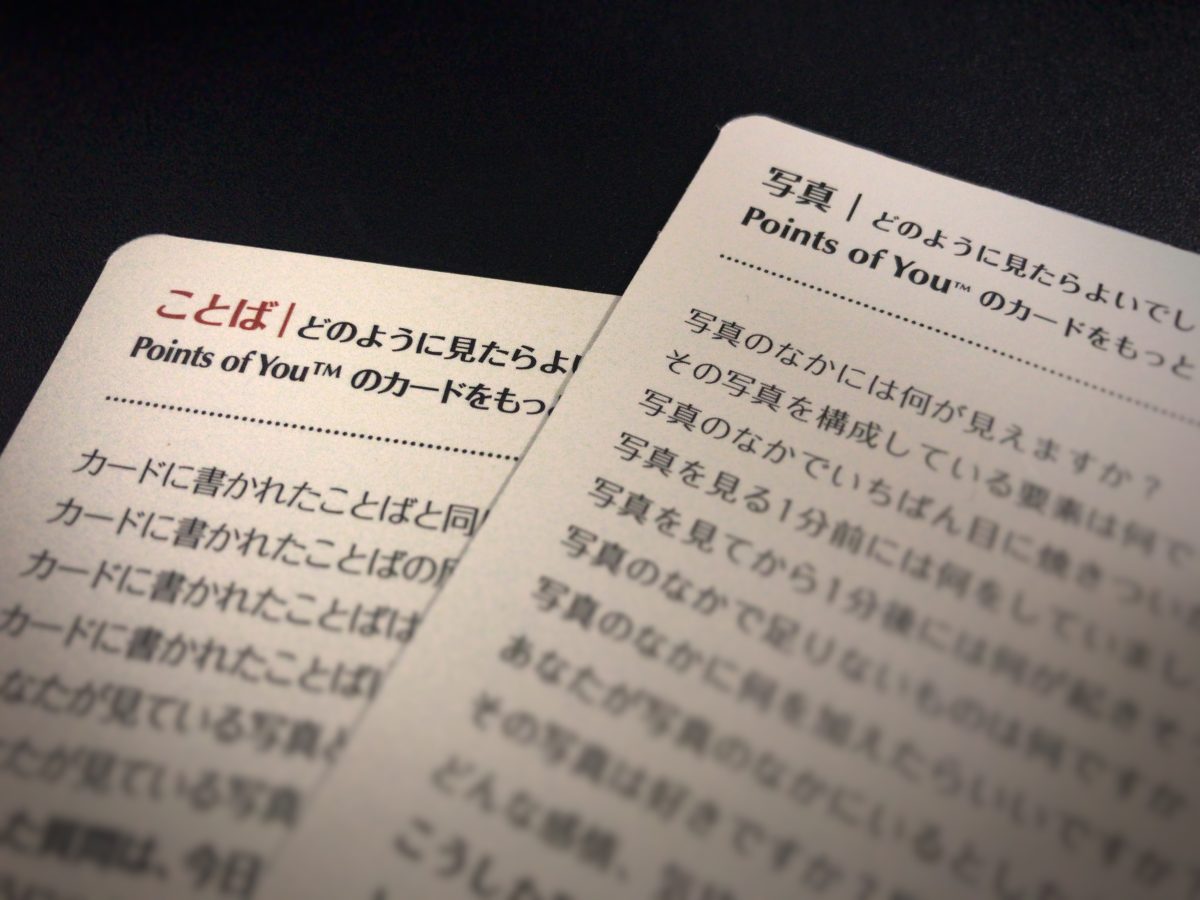 ことば|どのように見たらよい
Points of You™ のカードをもっ
カードに書かれたことばと同
カードに書かれたことばの
カードに書かれたことばは
カードに書かれたことば
なたが見ている写真と
たが見ている写真
た質問は、今日
写真|どのように見たらよいでし
Points of You™ のカードをもっと
写真のなかには何が見えますか?
その写真を構成している要素は何で
写真のなかでいちばん目に焼きつい
写真を見る1分前には何をしていまし
写真を見てから1分後には何が起きそ
写真のなかで足りないものは何ですか
写真のなかに何を加えたらいいですか?
あなたが写真のなかにいるとした
その写真は好きですか?
どんな感情、
こうした